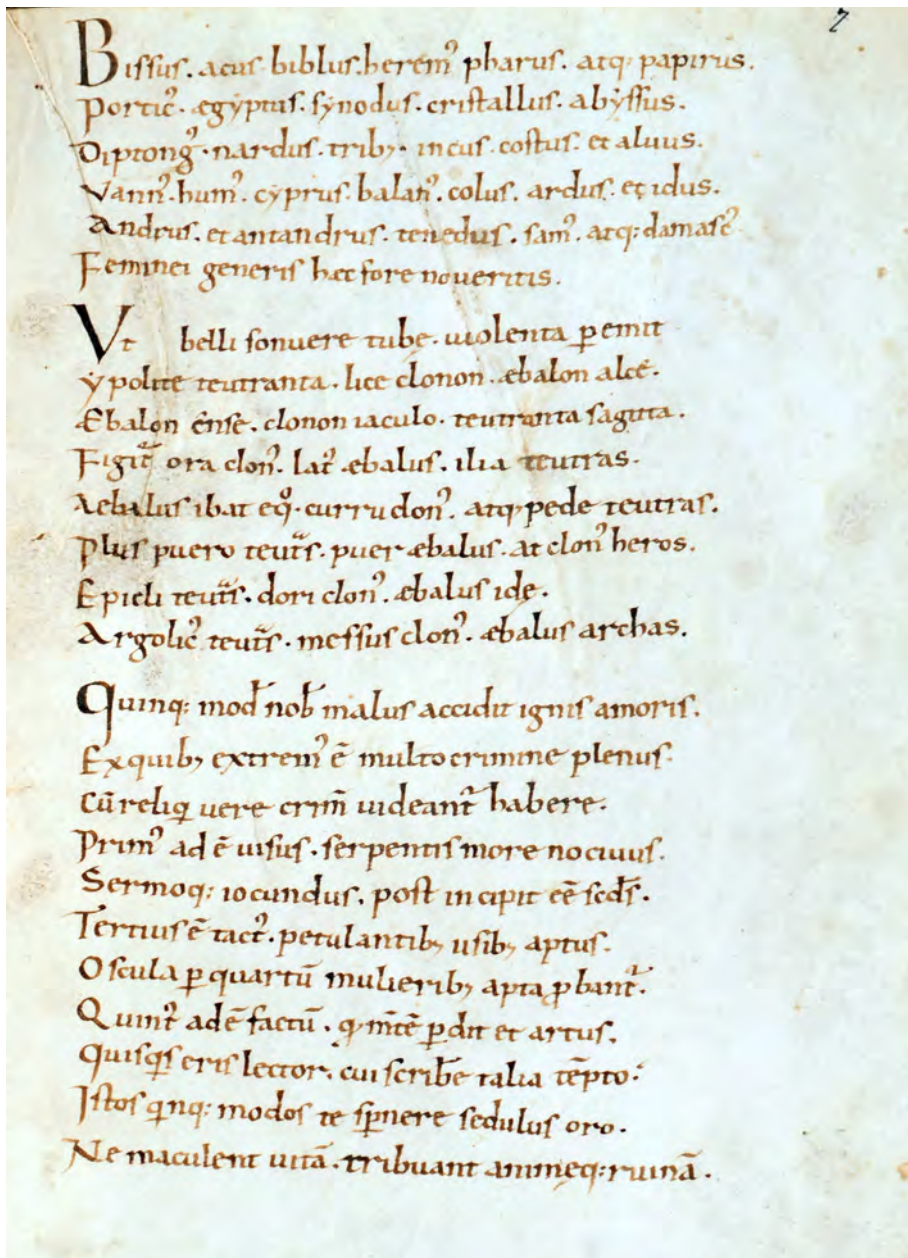 7
Bissus. acus biblus. herem᾿ pharus. atq; papirus.
Portic᾿. ęgyptus. synodus. cristallus. abyssus.
Diptong᾿. nardus. trib;. incus. costus. et aluus.
Vann᾿. hum᾿. cyprus. balan᾿. colus. ardus. et idus.
Andrus. et antandrus. tenedus. sam᾿. atq; damasc᾿
Feminei generis hęc fore noueritis.
Vt belli sonuere tubę. uiolenta p̄emit
ypolite teutranta. lice clonon. æbalon alcē.
Æbalon ense. clonon iaculo. teutranta sagitta.
Figit᷑ ora clon᾿. lat᾿ æbalus. ilia teutras.
Aebalus ibat eqͦ. curru clon᾿. atq; pede teutras.
Plus puero teut᷑s. puer æbalus. at clon᾿ heros.
Epicli teut᷑s. dori clon᾿. æbalus idę.
Argolic᾿ teut᷑s. messus clon᾿. æbalus archas.
Quinq; mod̄ nob̄ malus accidit ignis amoris.
Ex quib; extrem᾿ ē multo crimine plenus.
Cū reliq uere crim̄ uideant᷑ habere.
Prim᾿ ad ē uisus. serpentis more nociuus.
Sermoq; iocundus. post incipit eē scd̄s.
Tertius ē tact᾿. petulantib; usib; aptus.
Oscula p̄ quartū mulierib; apta ꝓbant᷑.
Quint᾿ adē factū. q m̄tē p̄dit et artus.
Quisqs eris lector. cui scrib̄e talia tēpto.
Istos qnq; modos te sp̄nere sedulus oro.
Ne maculent uitā. tribuant animęq; ruinā.